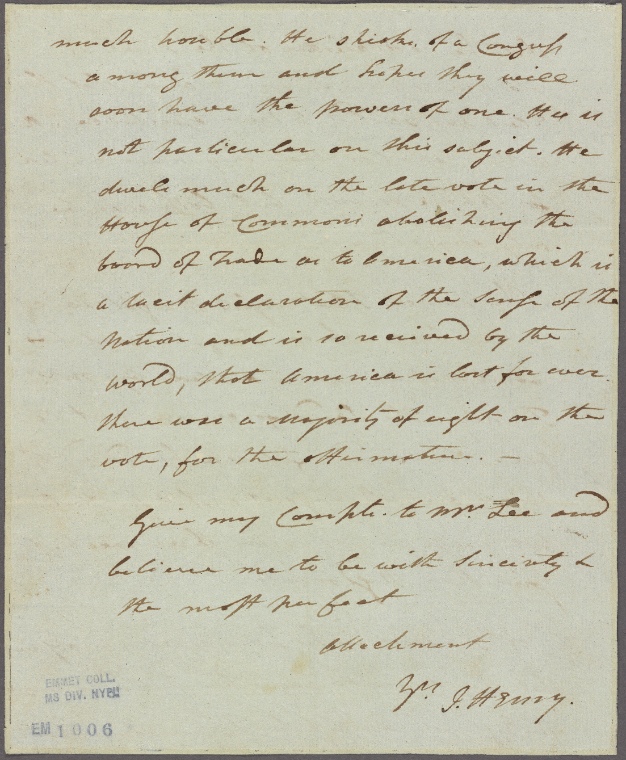 much trouble. He speaks of a Congress
among them and hopes they will
soon have the powers of one. He is
not particular on this subject. He
dwels much on the late vote in the
House of Commons abolishing the
board of Trade as to America, which is
a tacit declaration of the sense of the
Nation and is so received by the
world, that America is lost for ever.
there was a majority of eight on the
vote, for the affirmative. —
Give my Compts. to Mr. Lee and
believe me to be with sincerity &
the most perfect
attachment
Yrs J. Henry.
EMMET COLL.
MS DIV. NYPL
EM 1006